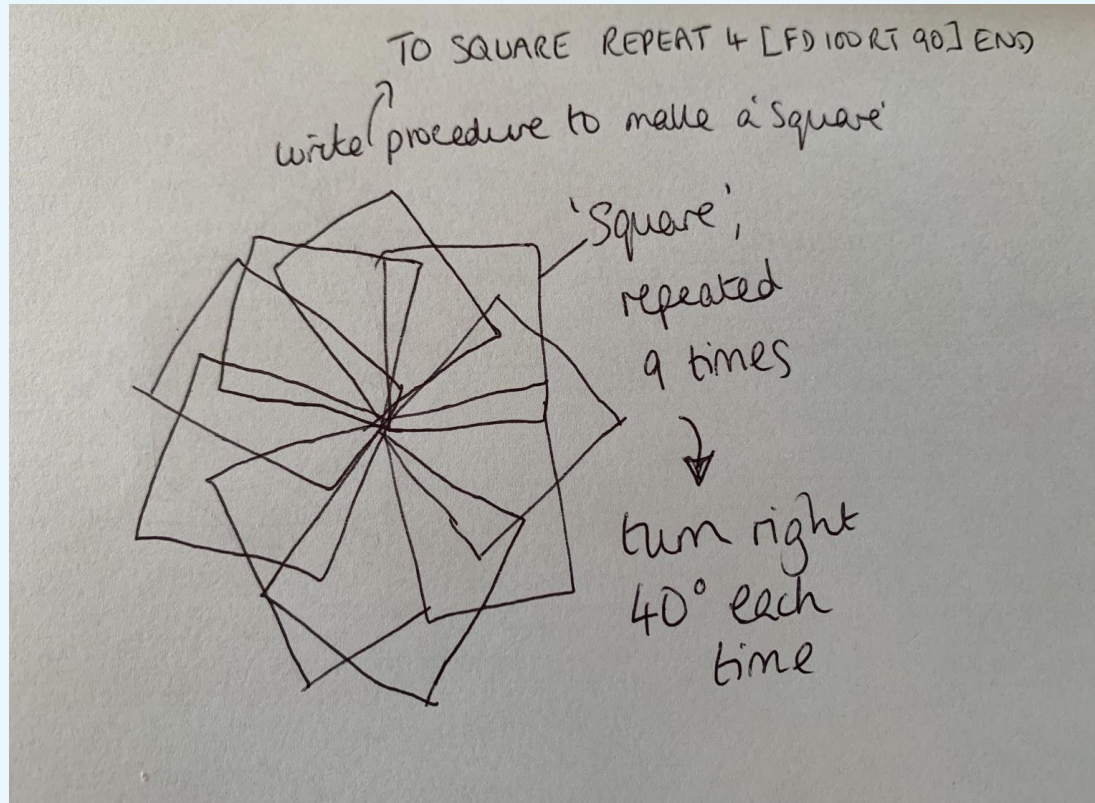 TO SQUARE REPEAT 4 [FD 100 RT 90] END
write procedure to make a 'Square'
'Square',
repeated
9 times
turn right
40° each
time